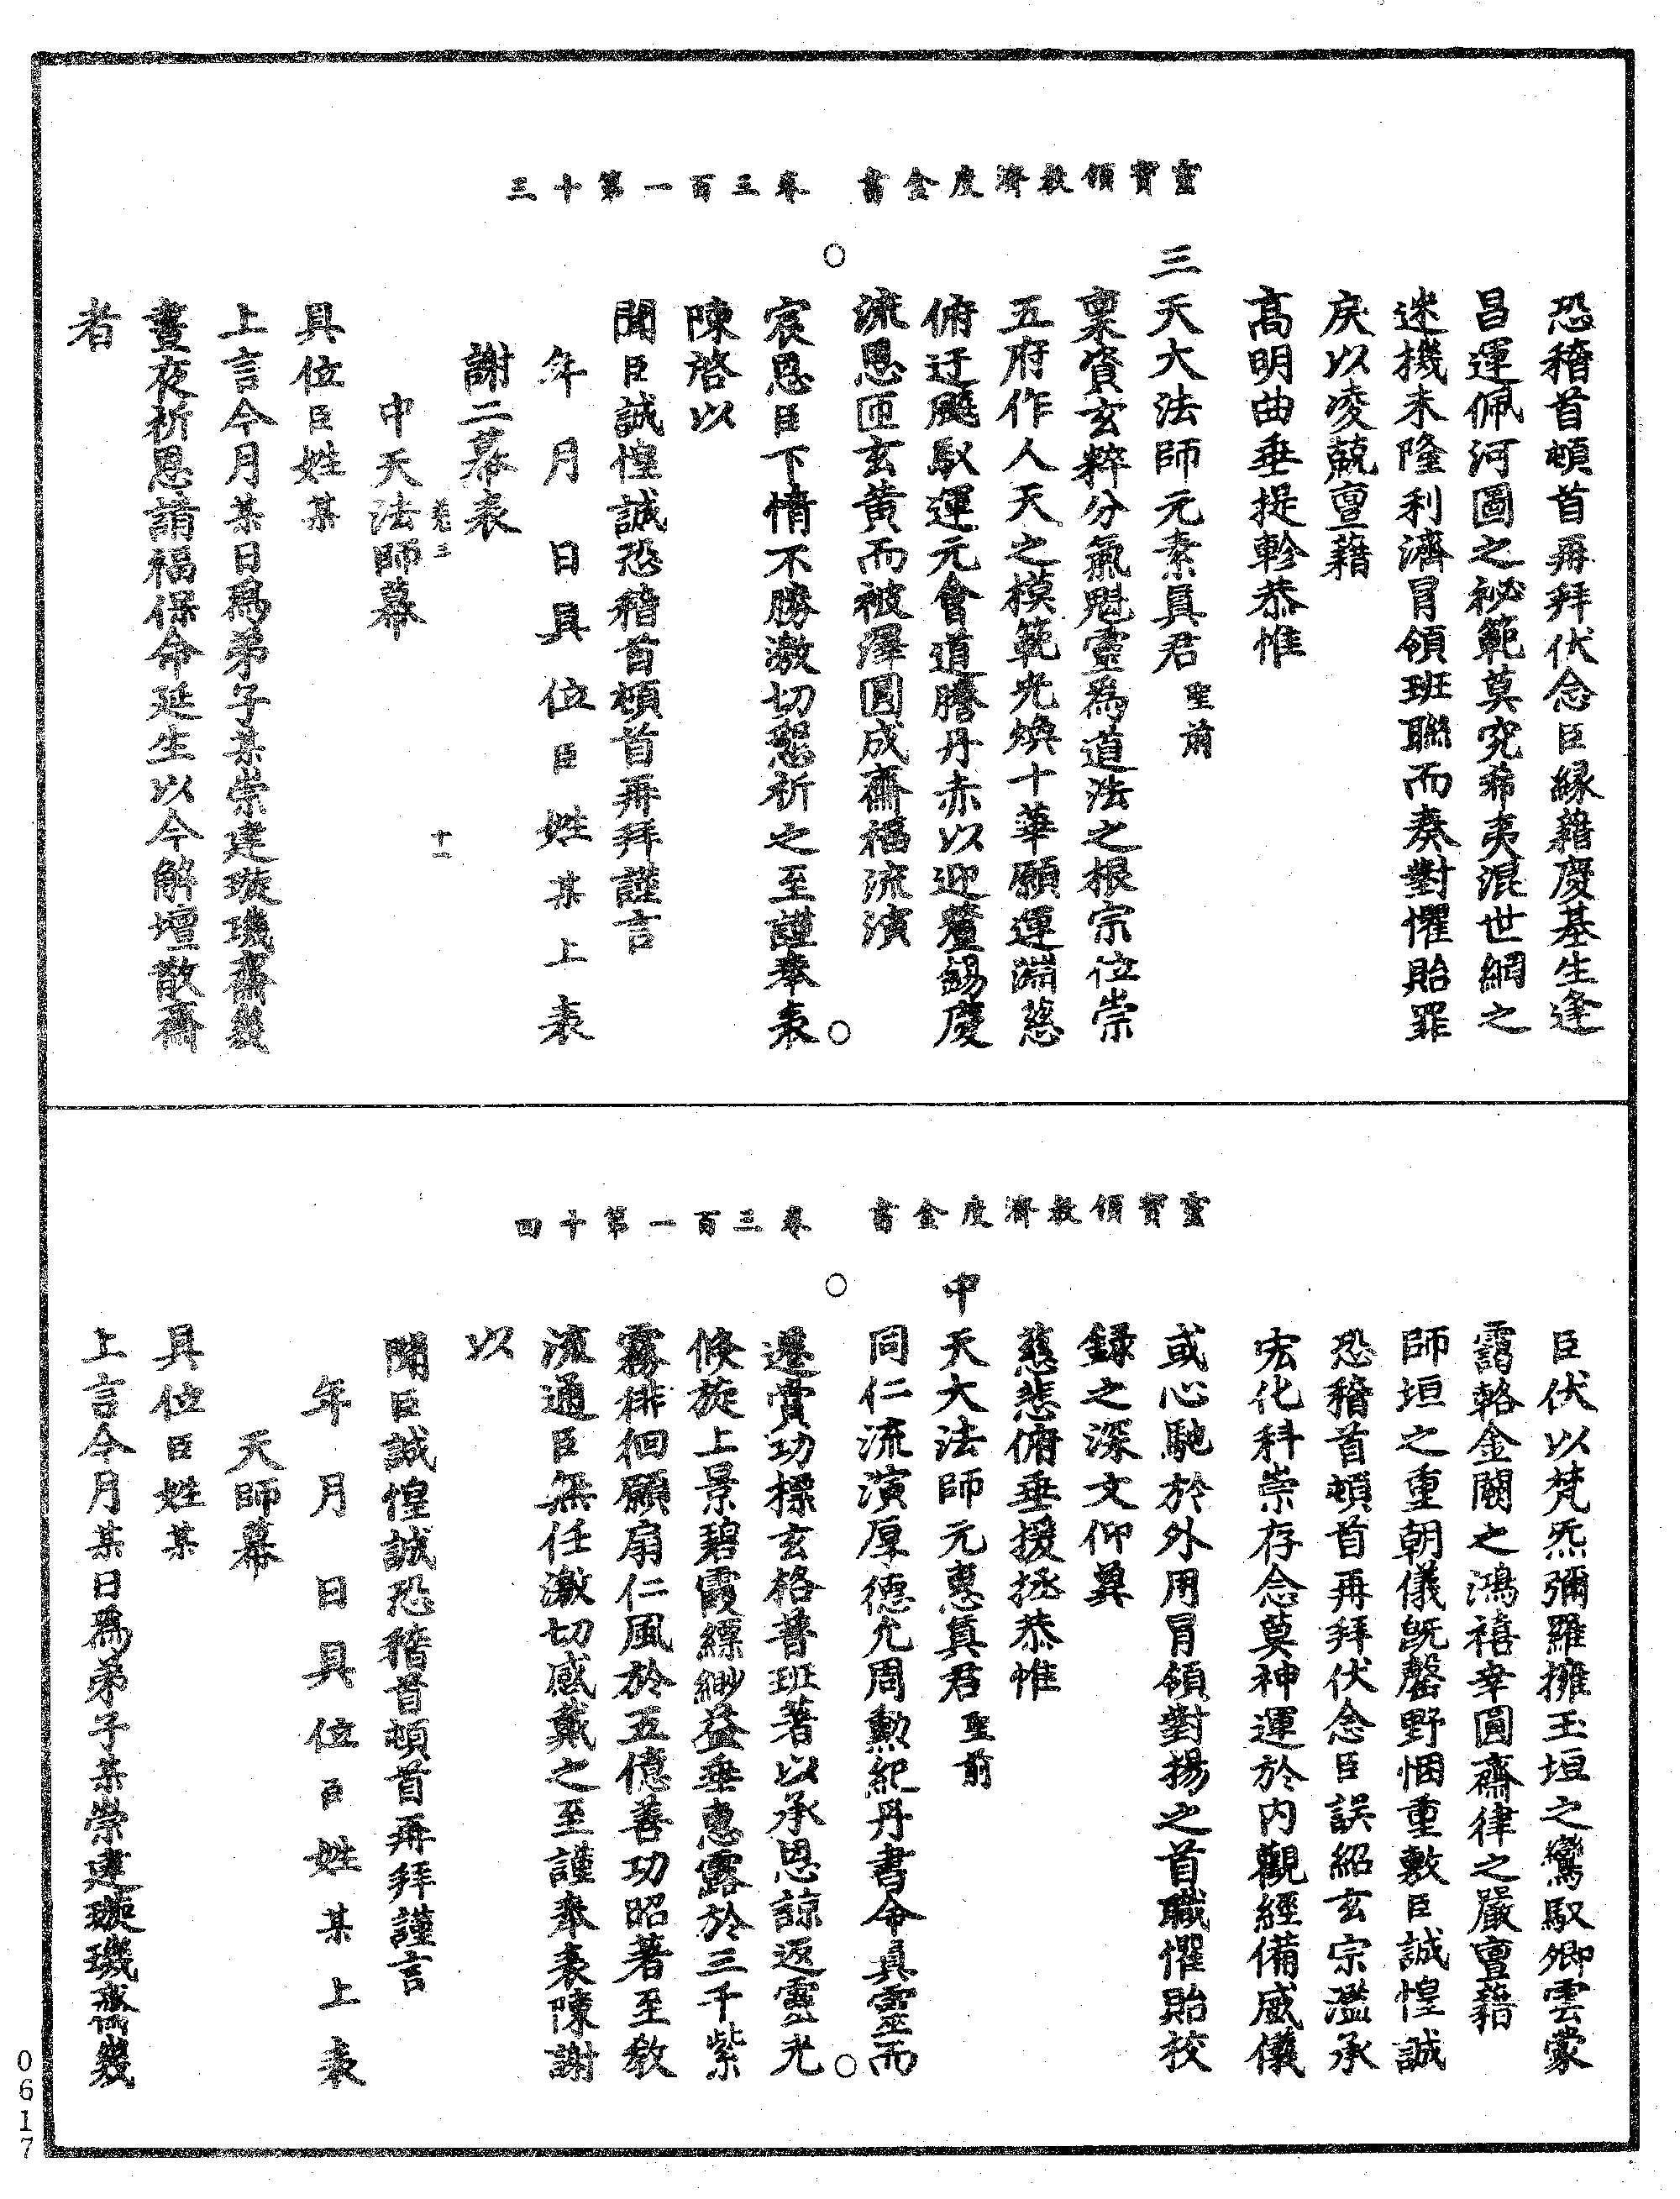 靈寶領教濟度金書　卷三百一第十三
恐稽首頓首再拜伏念臣縁藉慶基生逢
昌運佩河圖之祕範莫究希夷混世網之
迷機未隆利濟冒領班聯而奏對懼貽罪
戾以凌兢亶藉
高明曲垂提軫恭惟
三天大法師元素真君聖前
稟資玄粹分氣䰢靈為道法之根宗位崇
五府作人天之模範光煥十華願運淵慈
俯迂飈馭運元會道謄丹赤以迎釐錫慶
流恩匝玄黄而被澤圓成齋福流演
宸恩臣下情不勝激切懇祈之至謹奉表
陳啓以
聞臣誠惶誠恐稽首頓首再拜謹言
年　月　日具位臣姓某上表
謝二幕表
卷三　十一
中天法師幕
具位臣姓某
上言今月某日爲弟子某崇建璇璣齋幾
晝夜祈恩請福保命延生以今解壇散齋
者
靈寶領教濟度金書　卷三百一第十四
臣伏以梵炁彌羅擁玉垣之鸞馭卿雲蒙
靄輅金闕之鴻禧幸圓齋律之嚴亶藉
師垣之重朝儀既罄野悃重敷臣誠惶誠
恐稽首頓首再拜伏念臣誤紹玄宗濫承
宏化科崇存念莫神運於内觀經備威儀
或心馳於外用冒領對揚之首職懼貽校
録之深文仰冀
慈悲俯垂援拯恭惟
中天大法師元惠真君聖前
同仁流演厚德允周勳紀丹書命真靈而
遷賞功標玄格普班著以承恩諒返靈光
倏旋上景碧霞縹緲益垂惠露於三千紫
霧徘徊願扇仁風於五億善功昭著至敎
流通臣無任激切感戴之至謹奉表陳謝
以
聞臣誠惶誠恐稽首頓首再拜謹言
年　月　日具位臣姓某上表
天師幕
具位臣姓某
上言今月某日爲弟子某崇建璇璣齋幾
0617